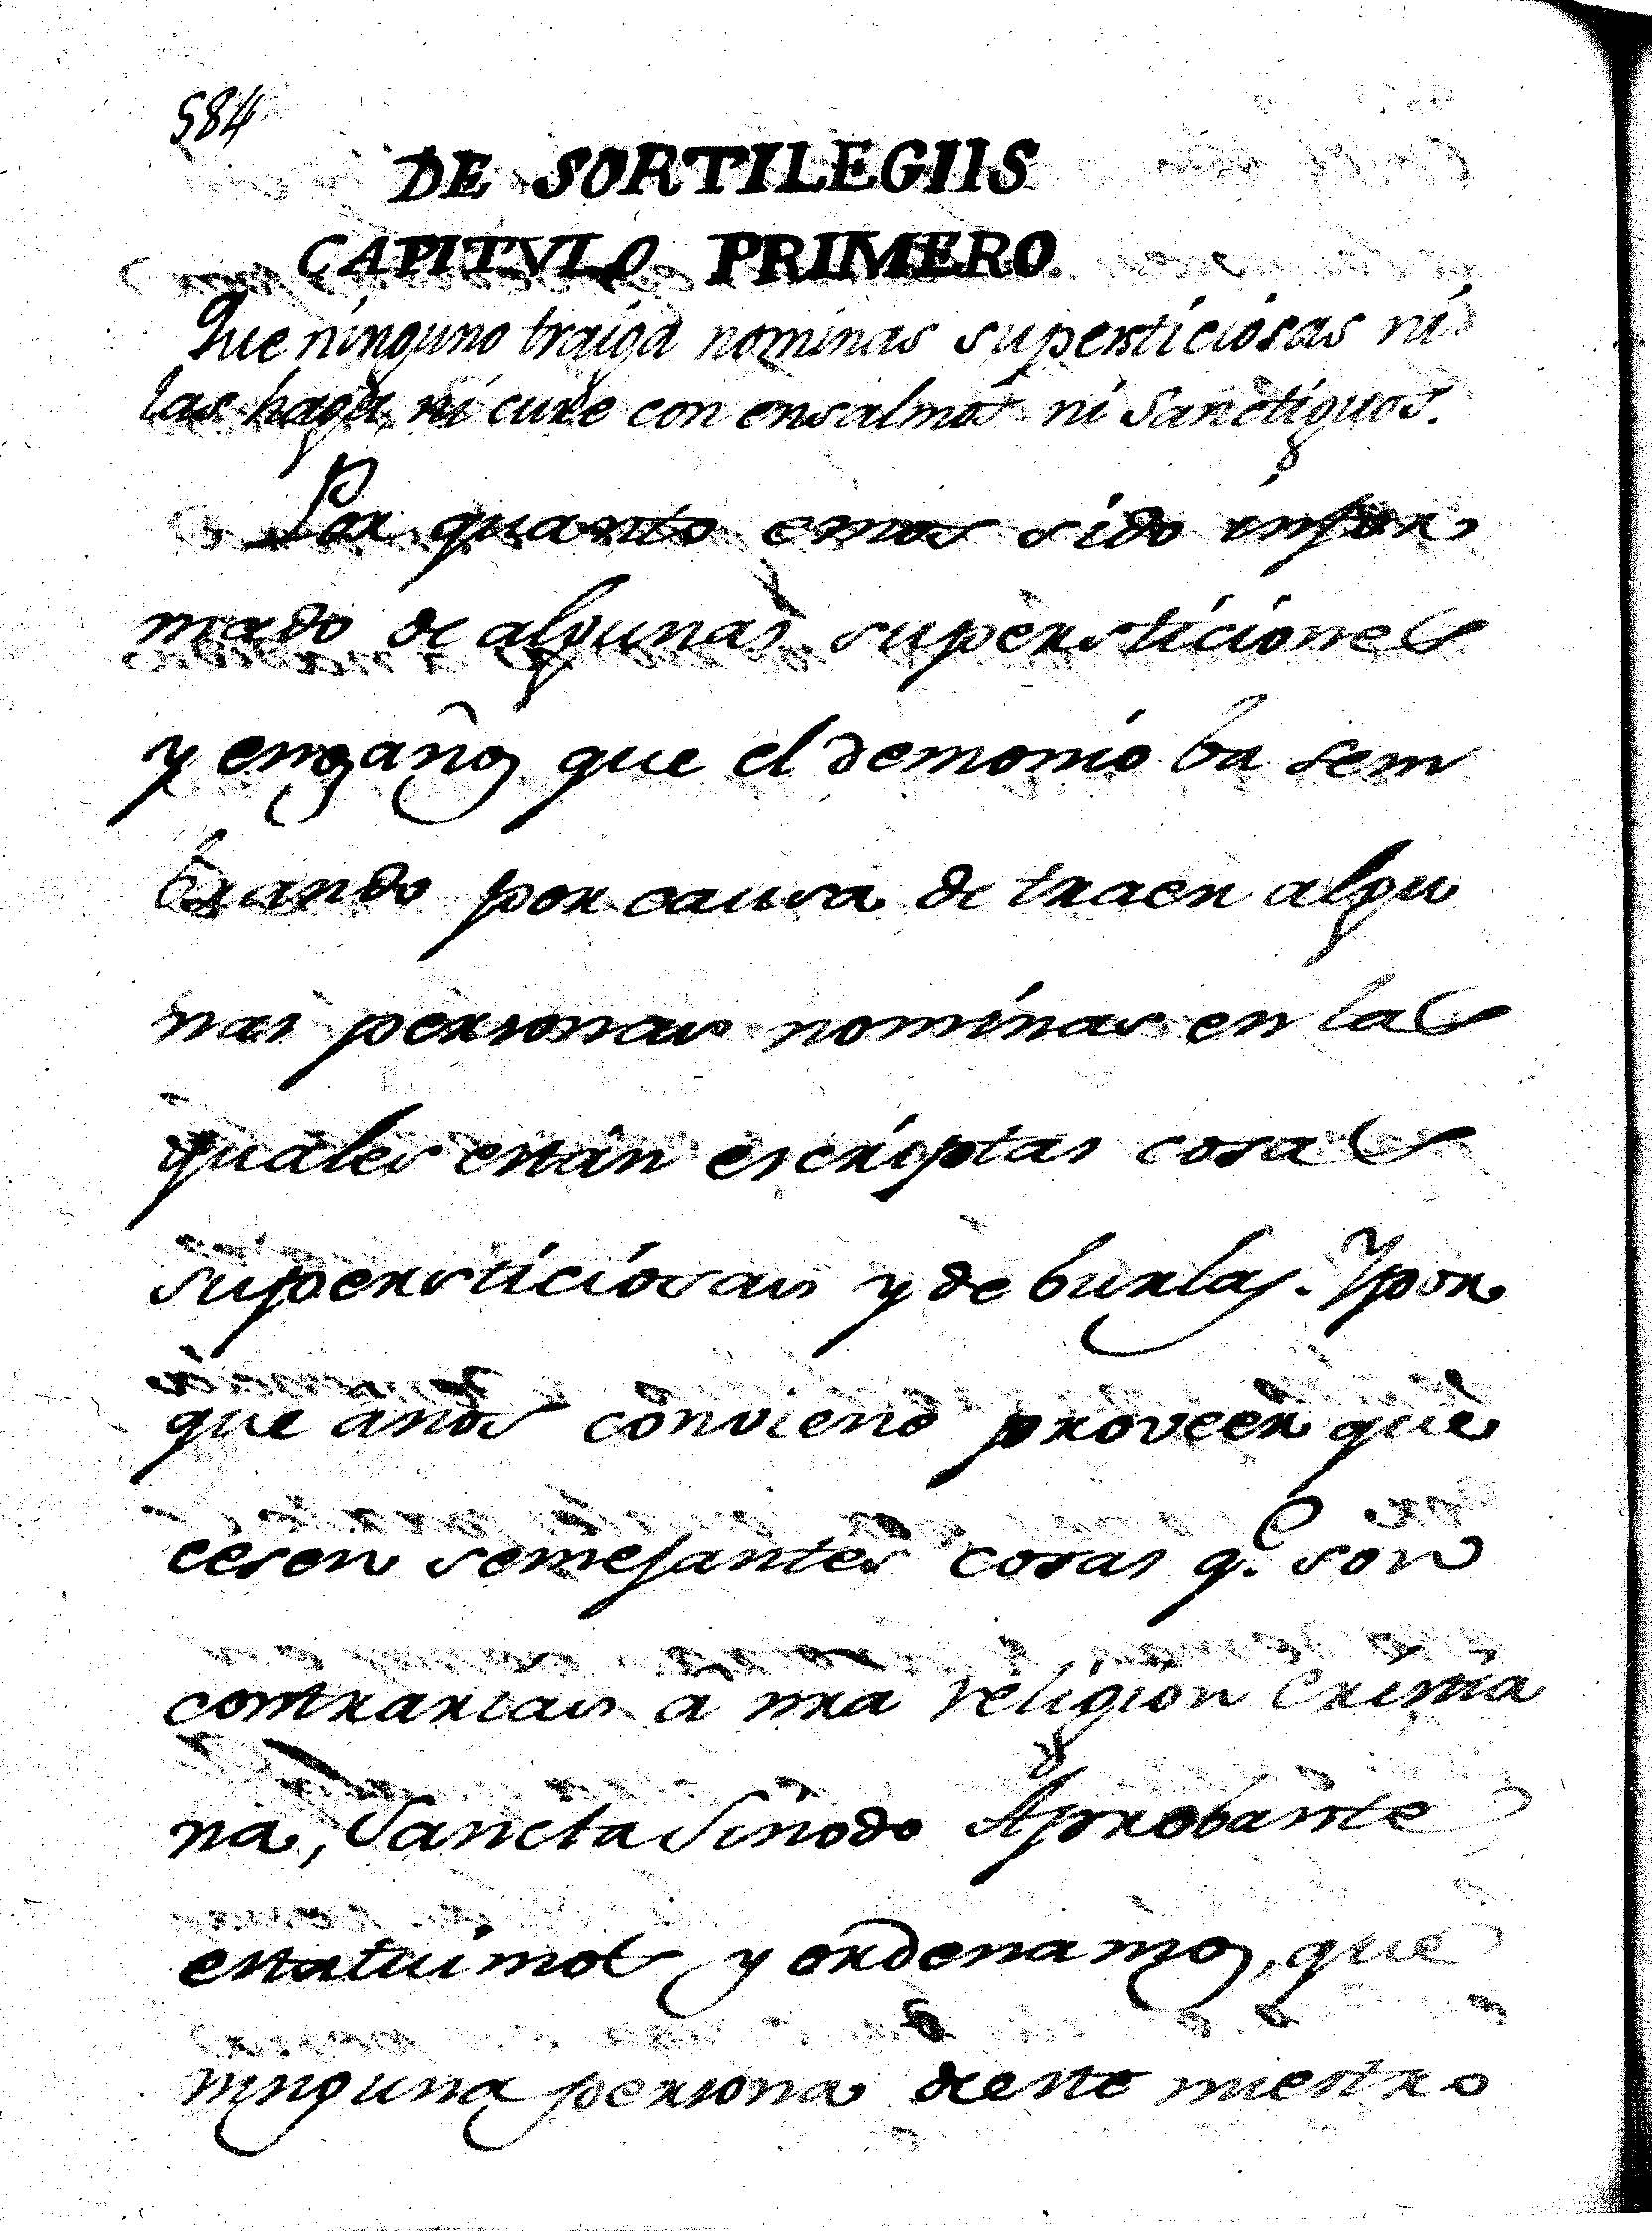 584
DE SORTILEGIIS
CAPITVLO PRIMERO.
Que ninguno traiga nominas supersticiosas ni
las haga, ni cure con ensalmos ni Sanctiguos.
Por quanto emos sido infor
mado de algunas supersticiones
y engaños que el demonio ba sem
brando por causa de traer algu
nas personas nominas en las
quales están escriptas cosas
supersticiosas y de burlas. Ypor
que anos conviene proveer que
cesen semejantes cosas q.e son
contrarias à nra religion Cristia
na, Sancta Sinodo Aprobante
estatuimos y ordenamos, que
ninguna persona deste nuestro